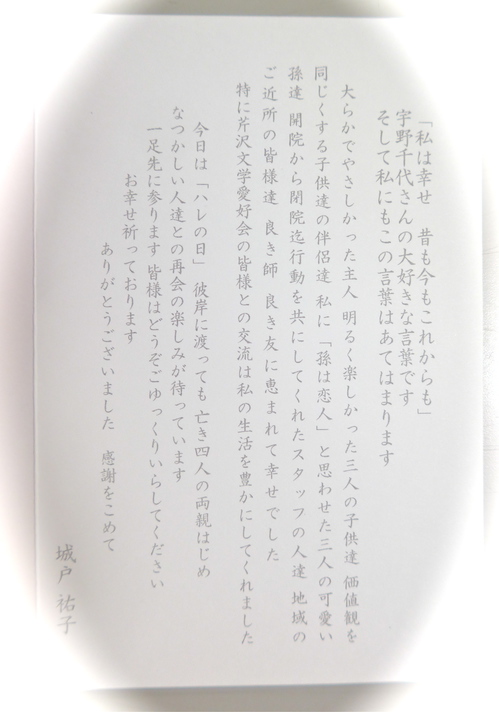 「私は幸せ　昔も今もこれからも」
宇野千代さんの大好きな言葉です
そして私にもこの言葉はあてはまります
大らかでやさしかった主人 明るく楽しかった三人の子供達 価値観を
同じくする子供達の伴侶達 私に「孫は恋人」と思わせた三人の可愛い
孫達 開院から閉院迄行動を共にしてくれたスタッフの人達 地域の
ご近所の皆様達 良き師 良き友に恵まれて幸せでした
特に芹沢文学愛好会の皆様との交流は私の生活を豊かにしてくれました
今日は「ハレの日」彼岸に渡っても 亡き四人の両親はじめ
なつかしい人達との再会の楽しみが待っています
一足先に参ります 皆様はどうぞごゆっくりいらしてください
お幸せ祈っております
ありがとうございました　感謝をこめて
城戸 祐子